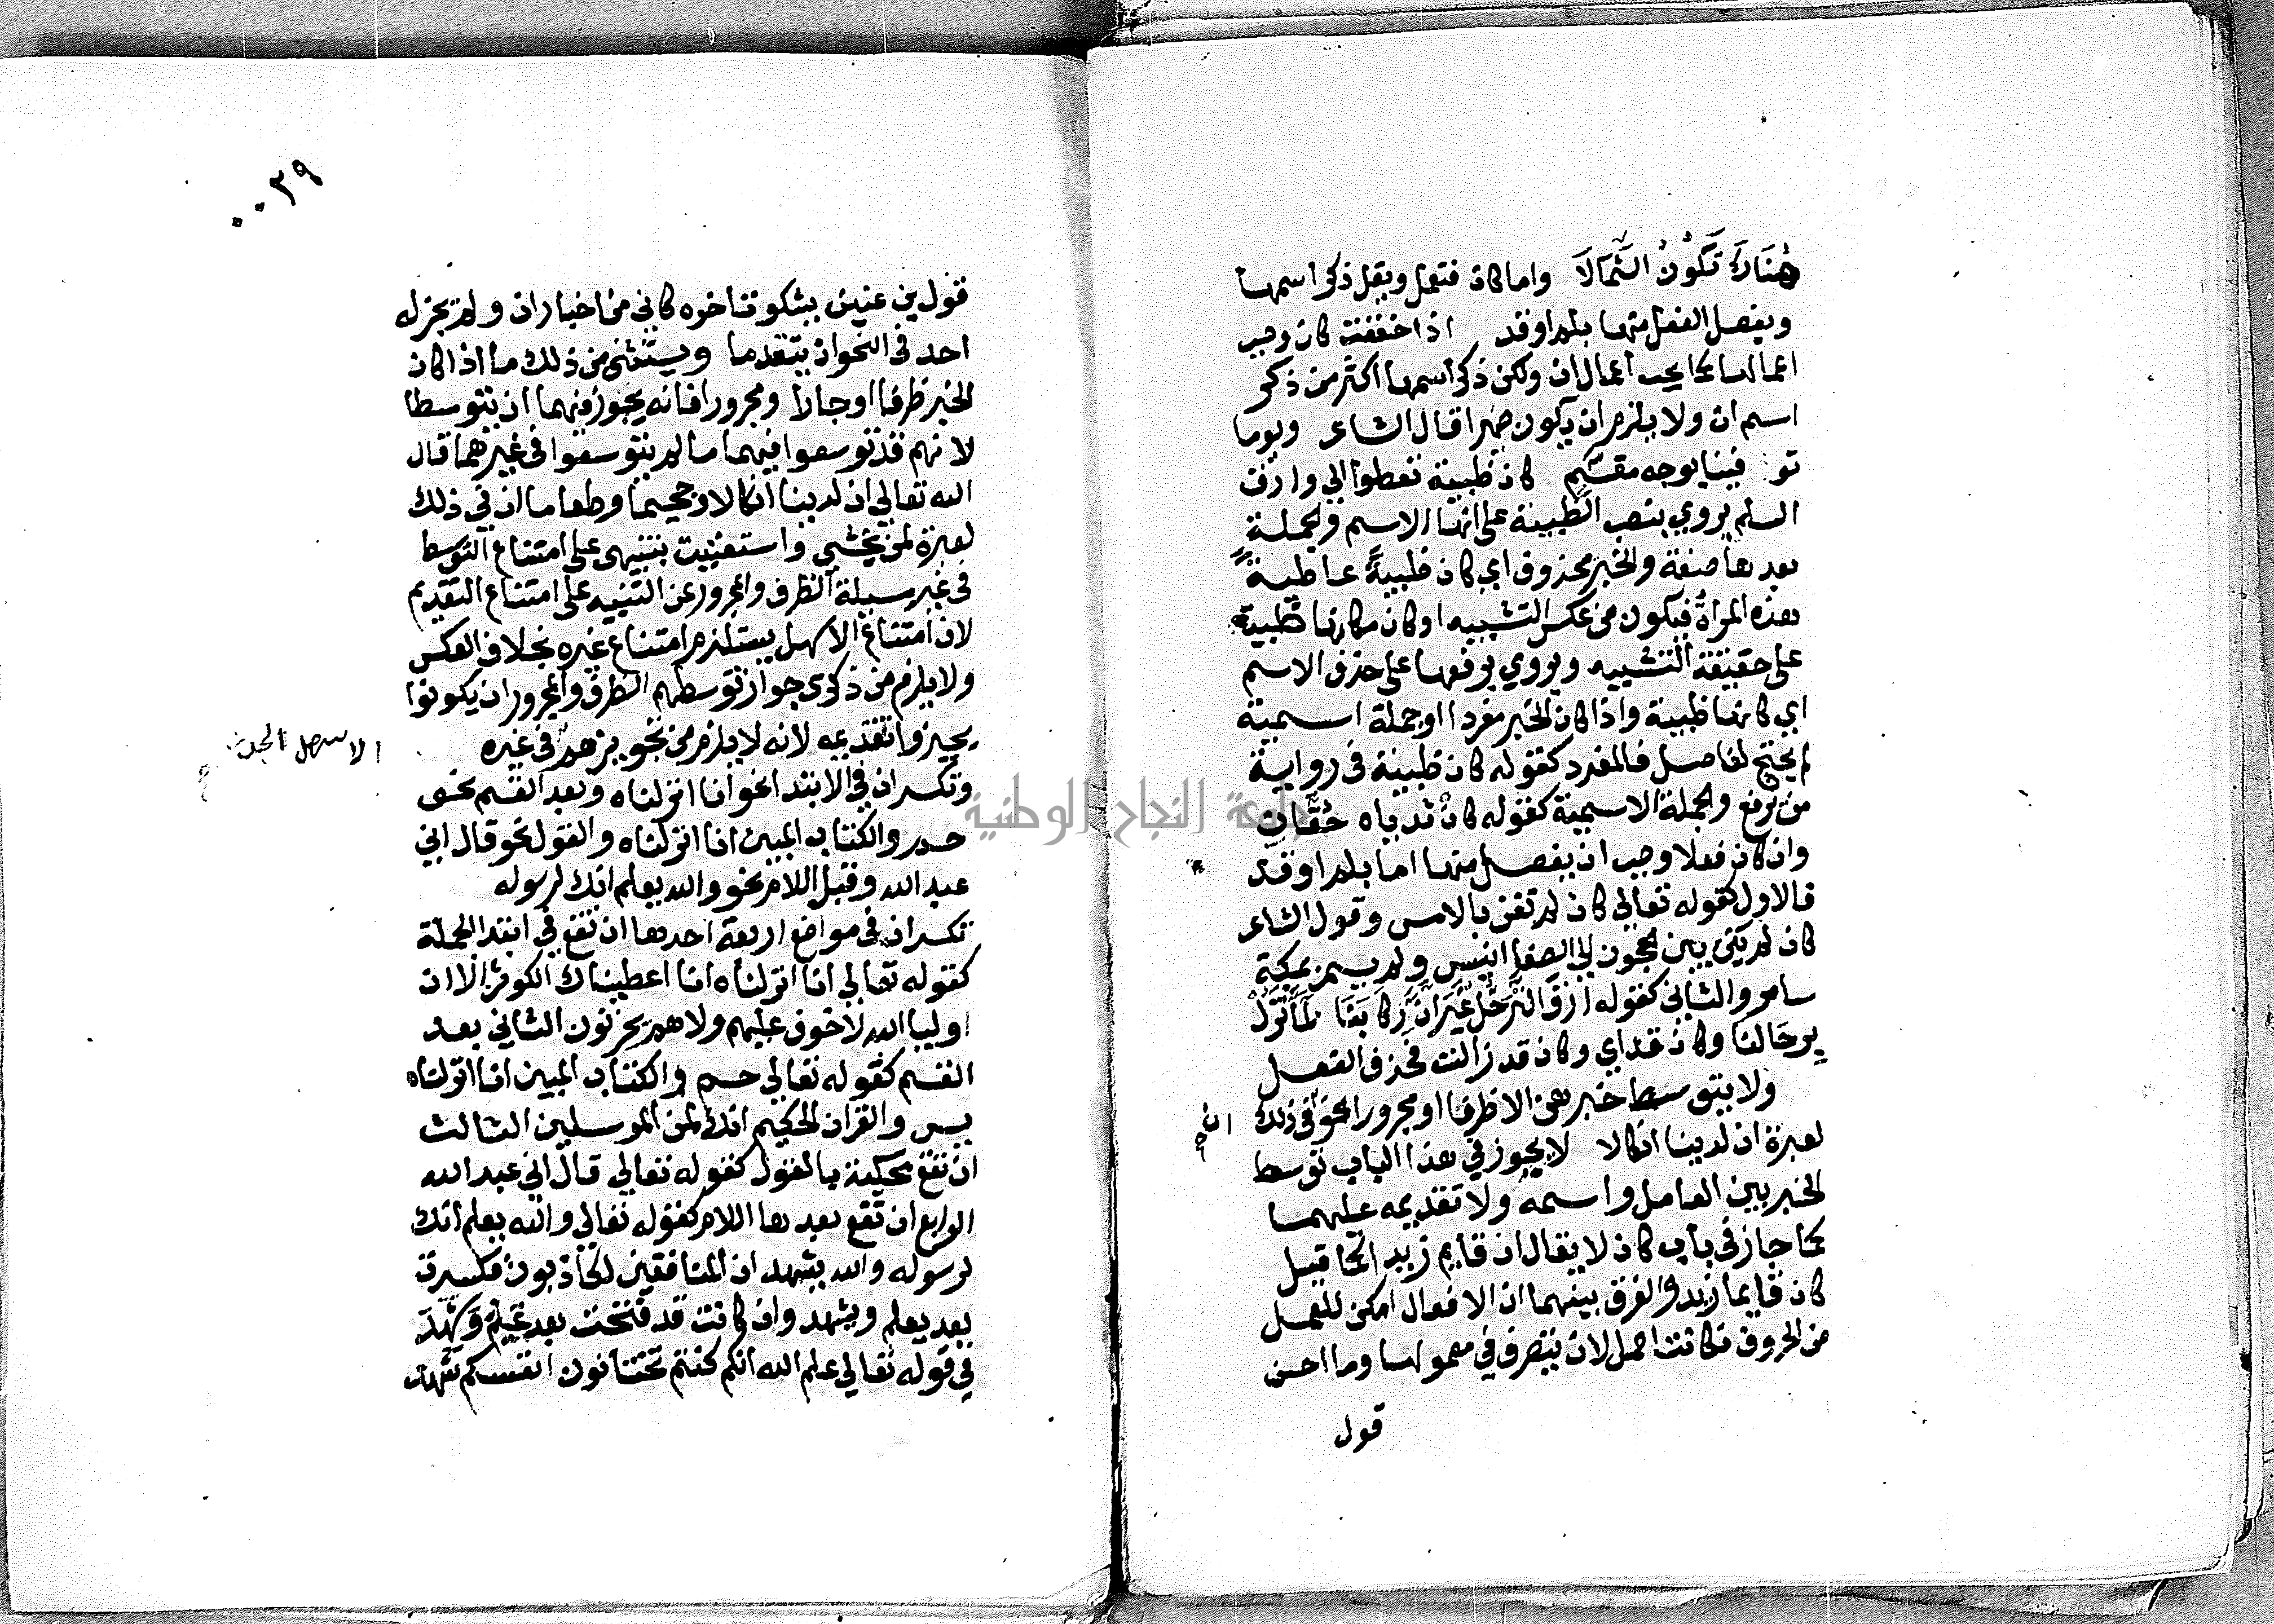 هُنَاكَ تَكُونُ الثِّمَالَا واما كان فتعمل ويقل ذكر اسمها
ويفصل الفعل منها بلم او قد اذا خففت كان وجب
اعمالها كما يجب اعمال ان ولكن ذكر اسمها اكثر من ذكر
اسم ان ولا يلزم ان يكون ضميرا قال الشاعر ويوما
فينا بوجه مقسّم كان ظبية تعطوا الي وارق
السلم يروي بنصب الظبية على انها الاسم والجملة
بعدها صفة والخبر محذوف اي كان ظبيةً عاطيةً
هذه المراة فيكون من عكس التشبيه او كان مكانها ظبية
على حقيقة التشبيه ويروي برفعها على حذف الاسم
اي كانها ظبية واذا كان الخبر مفردا او جملة اسمية
لم يحتج لفاصل فالمفرد كقوله كان ظبية في رواية
من رفع والجملة الاسمية كقوله كان ثدياه حُقّان
وان كان فعلا وجب ان يفصل منها اما بلم او قد
فالاول كقوله تعالي كان لم تغن بالامس وقول الشاعر
كان لم يكن بين الحجون الي الصفا انيس ولم يسمر بمكة
سامر والثاني كقوله ازف الترحّل غير ان ركابنا لما تزل
برحالنا وكان قد اي وكان قد زالت فحذف الفعل
ولا يتوسط خبرهن الا ظرفا او مجرورا نحو ان في ذلك
لعبرة ان لدينا انكالا لا يجوز في هذا الباب توسط
الخبر بين العامل واسمه ولا تقديمه عليهما
كما جاز في باب كان لا يقال ان قايم زيد كما قيل
كان قايما زيد والفرق بينهما ان الافعال امكن للعمل
من الحروف فكانت احمل لان يتصرف في معمولها وما احسن
قول
٠٠٣٩
قول بن عنين يشكو تاخره كاني من اخبار ان ولم يجز له
احد في النحو ان يتقدما ويستثنى من ذلك ما اذا كان
الخبر ظرفا او جارا ومجرورا فانه يجوز فيهما ان يتوسطا
لانهم قد توسعوا فيهما ما لم يتوسعوا في غيرهما قال
الله تعالي ان لدينا انكالا وجحيما وطعاما ان في ذلك
لعبرة لمن يخشي واستغنيت بتنبيهى على امتناع التوسط
في غير مسيلة الظرف والمجرور عن التنبيه على امتناع التقديم
لان امتناع الاسهل يستلزم امتناع غيره بخلاف العكس
ولا يلزم من ذكرى جواز توسطهم الظرف والمجرور ان يكونوا
يجيزوا تقديمه لانه لا يلزم من تجويزهم في غيره
الاسهل
وتكسر ان في الابتدا نحو انا انزلناه وبعد القسم نحو
حم والكتاب المبين انا انزلناه والقول نحو قال اني
عبد الله وقبل اللام نحو والله يعلم انك لرسوله
تكسر ان في مواضع اربعة احدها ان تقع في ابتدا الجملة
كقوله تعالي انا انزلناه انا اعطيناك الكوثر الا ان
اوليا الله لا خوف عليهم ولا هم يحزنون الثاني بعد
القسم كقوله تعالي حم والكتاب المبين انا انزلناه
يس والقران الحكيم انك لمن المرسلين الثالث
ان تقع محكية بالقول كقوله تعالي قال اني عبد الله
الرابع ان تقع بعدها اللام كقوله تعالي والله يعلم انك
لرسوله والله يشهد ان المنافقين لكاذبون فكسرت
بعد يعلم ويشهد وان كانت قد فتحت بعد عَلِمَ وشَهِدَ
في قوله تعالي علم الله انكم كنتم تختانون انفسكم شهد
جامعة النجاح الوطنية